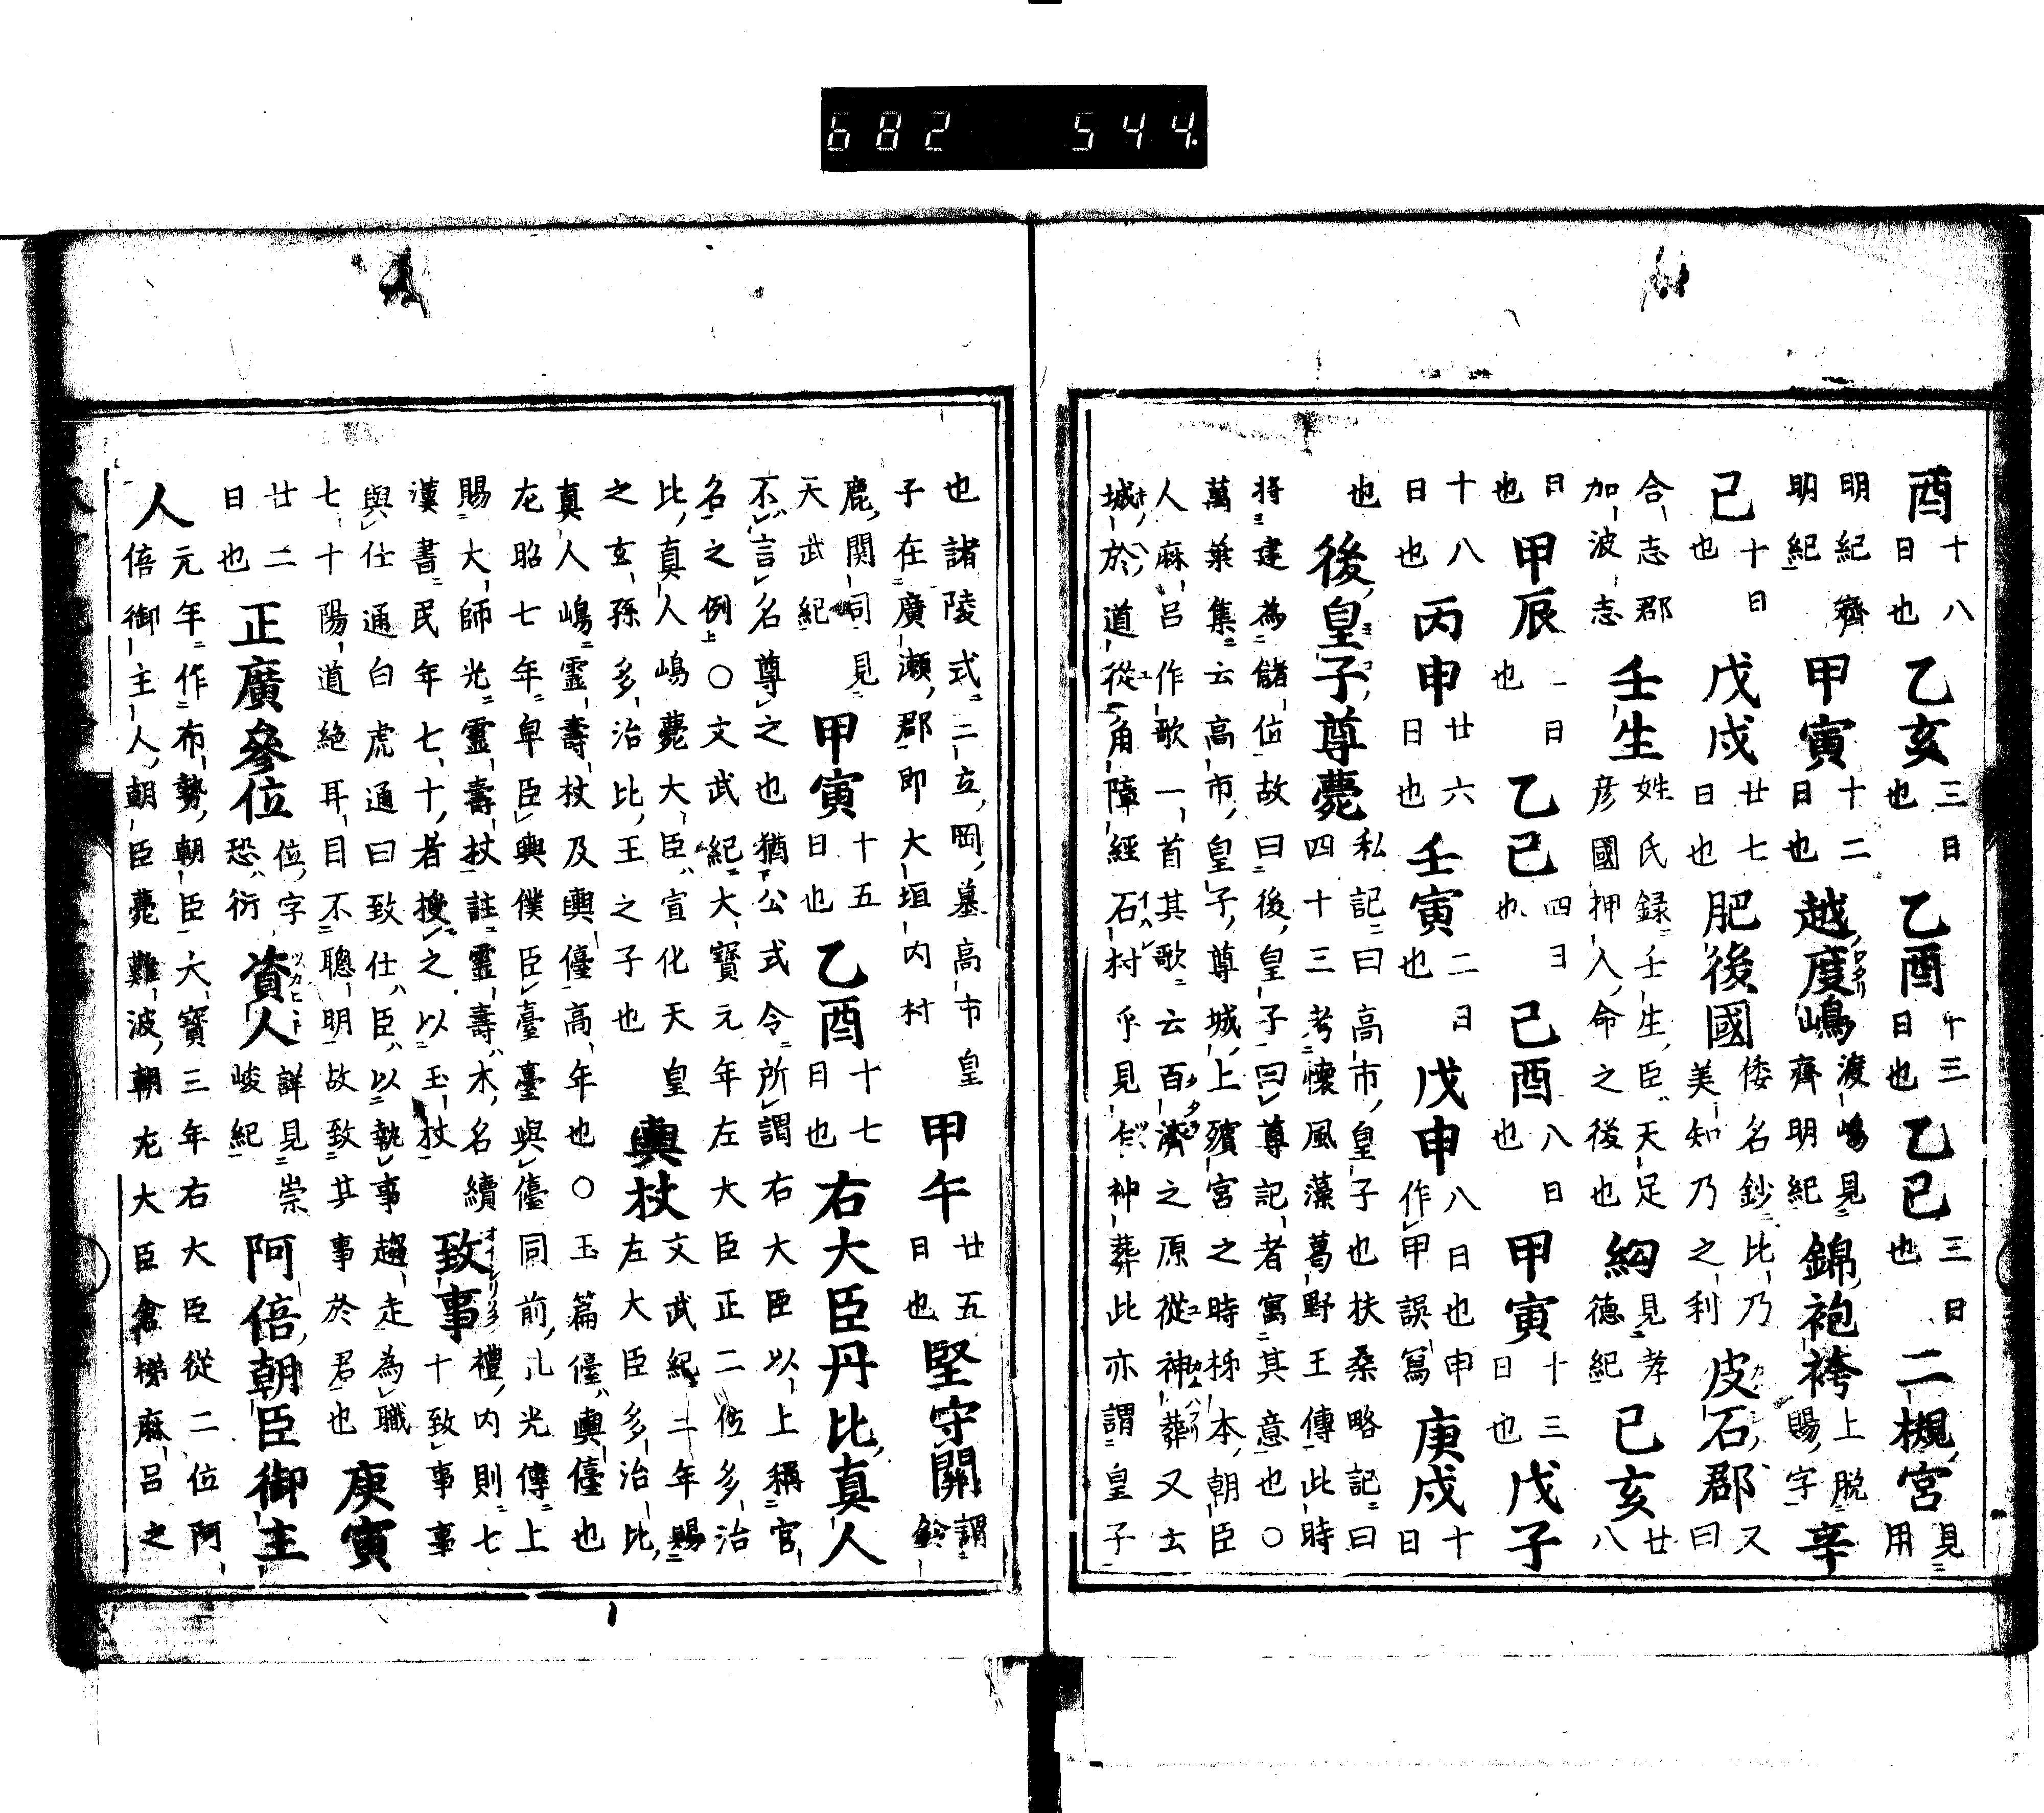 酉十八日也乙亥三日也乙酉十三日也乙巳三日也二槻宮見用
明紀齊明紀甲寅十二日也越度嶋渡嶋見齊明紀錦袍袴上脱賜字辛
己十日也戊戌廿七日也肥後國倭名鈔比乃美知乃之利皮石郡又曰
合志郡加波志壬生姓氏録壬生臣天足彦國押人命之後也綱見孝德紀已亥廿八
日也甲辰一日也乙己四日也己酉八日也甲寅十三日也戊子
十八日也丙申廿六日也壬寅二日也戊申八日也申作甲誤寫庚戌十日
也後皇子尊薨私記曰高市皇子也扶桑略記曰四十三考懷風藻葛野王傳此時
將建為儲位故曰後皇子曰尊記者寓其意也○萬葉集云高市皇子尊城上殯宮之時柹本朝臣
人麻呂作歌一首其歌云百濟之原從神葬又云城於道從角障經石村乎見乍神葬此亦謂皇子
也諸陵式二立岡墓高市皇子在廣瀬郡即大垣内村甲午廿五日也堅守關謂鈴
鹿関同見天武紀甲寅十五日也乙酉十七日也右大臣丹比真人
不言名尊之也猶公式令所謂右大臣以上稱官名之例○文武紀大寶元年左大臣正二位多治
比真人嶋薨大臣宣化天皇之玄孫多治比王之子也輿杖文武紀二年賜左大臣多治比
真人嶋靈壽杖及輿儓高年也○玉篇儓輿儓也左昭七年皁臣輿僕臣臺臺與儓同前孔光傳上
賜大師光靈壽杖註靈壽木名續漢書民年七十者授之以玉杖致事禮内則七十致事事
與仕通白虎通曰致仕臣以執事趨走為職七十陽道絶耳目不聰明故致其事於君也庚寅
廿二日也正廣參位位字恐衍資人詳見崇峻紀阿倍朝臣御主
人元年作布勢朝臣大寶三年右大臣從二位阿倍御主人朝臣薨難波朝左大臣倉梯麻呂之
682 544